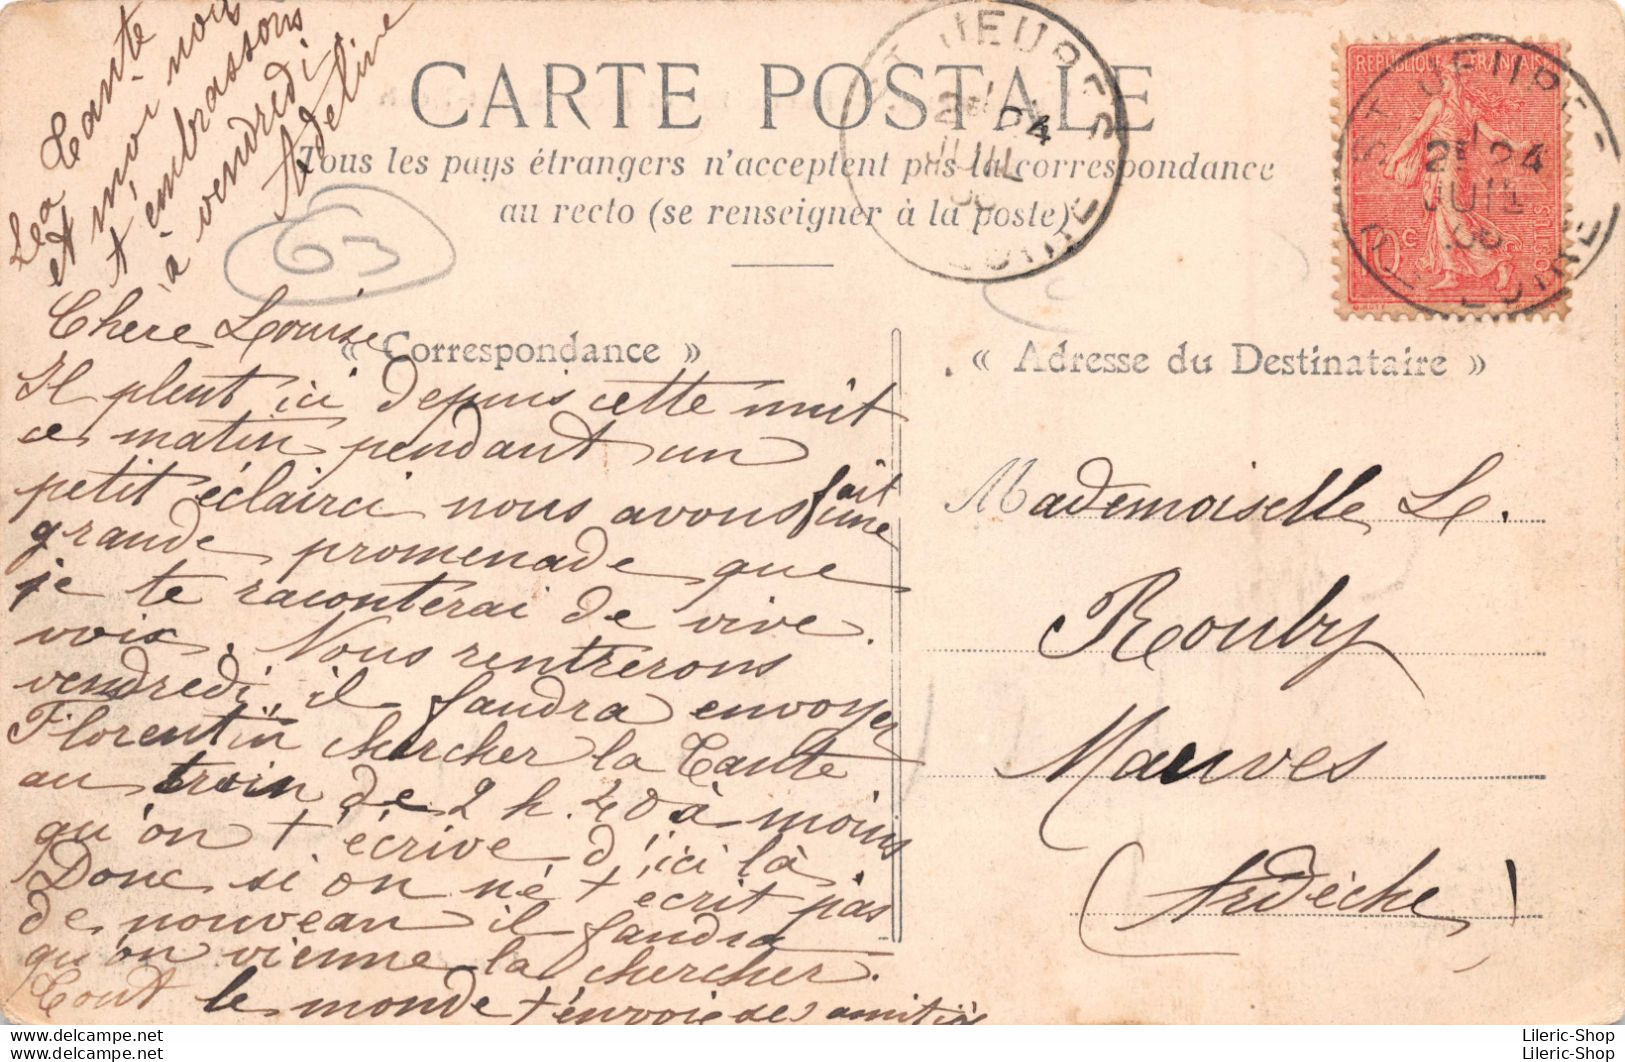 CARTE POSTALE
Tous les pays étrangers n'acceptent pas la correspondance
au recto (se renseigner à la poste)
ST JEURES
2E 24
JUIL
REPUBLIQUE FRANÇAISE
10c
POSTES
ST JEURES
2E 24
JUIL
HTE LOIRE
63
« Correspondance »
« Adresse du Destinataire »
Chère Louise
Il pleut ici depuis cette nuit
ce matin pendant un
petit éclairci nous avons fait une
grande promenade que
je te raconterai de vive
voix. Nous rentrerons
vendredi, il faudra envoyer
Florentin chercher la Tante
au train de 2 h. 40 à moins
qu'on t'écrive d'ici là
Donc si on ne t'écrit pas
de nouveau il faudra
qu'on vienne la chercher.
Tout le monde t'envoie des amitiés
La Tante
et moi nous
t'embrassons
à vendredi
Adeline
Mademoiselle L.
Rouby
Mauves
(Ardèche)
Lileric-Shop
Lileric-Shop